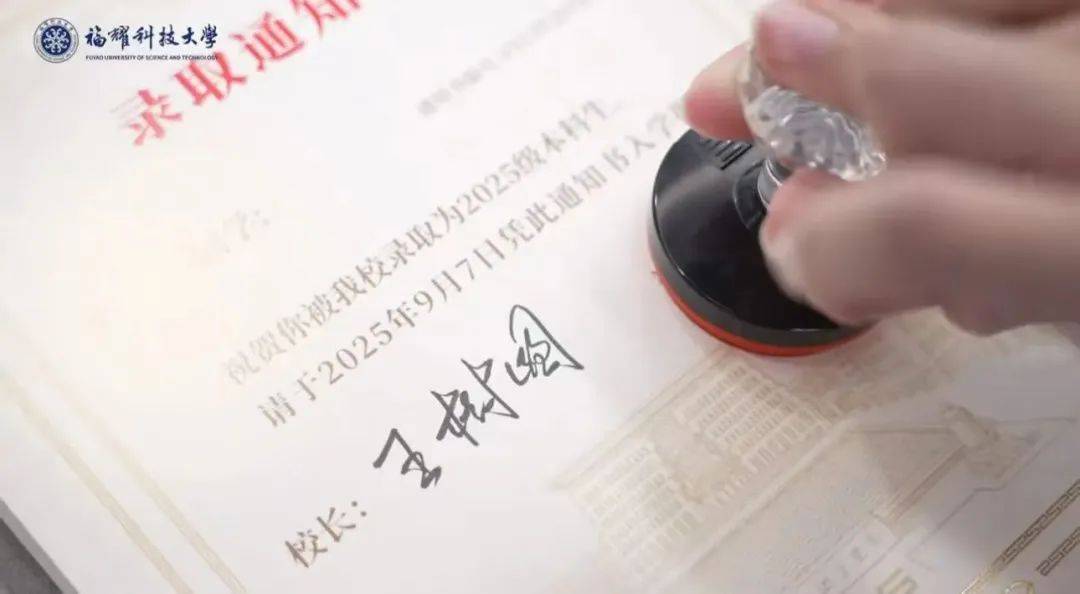 福耀科技大学
FUYAO UNIVERSITY OF SCIENCE AND TECHNOLOGY
录取通知
学:
祝贺你被我校录取为2025级本科生
请于2025年9月7日凭此通知书入学
校长:王树国